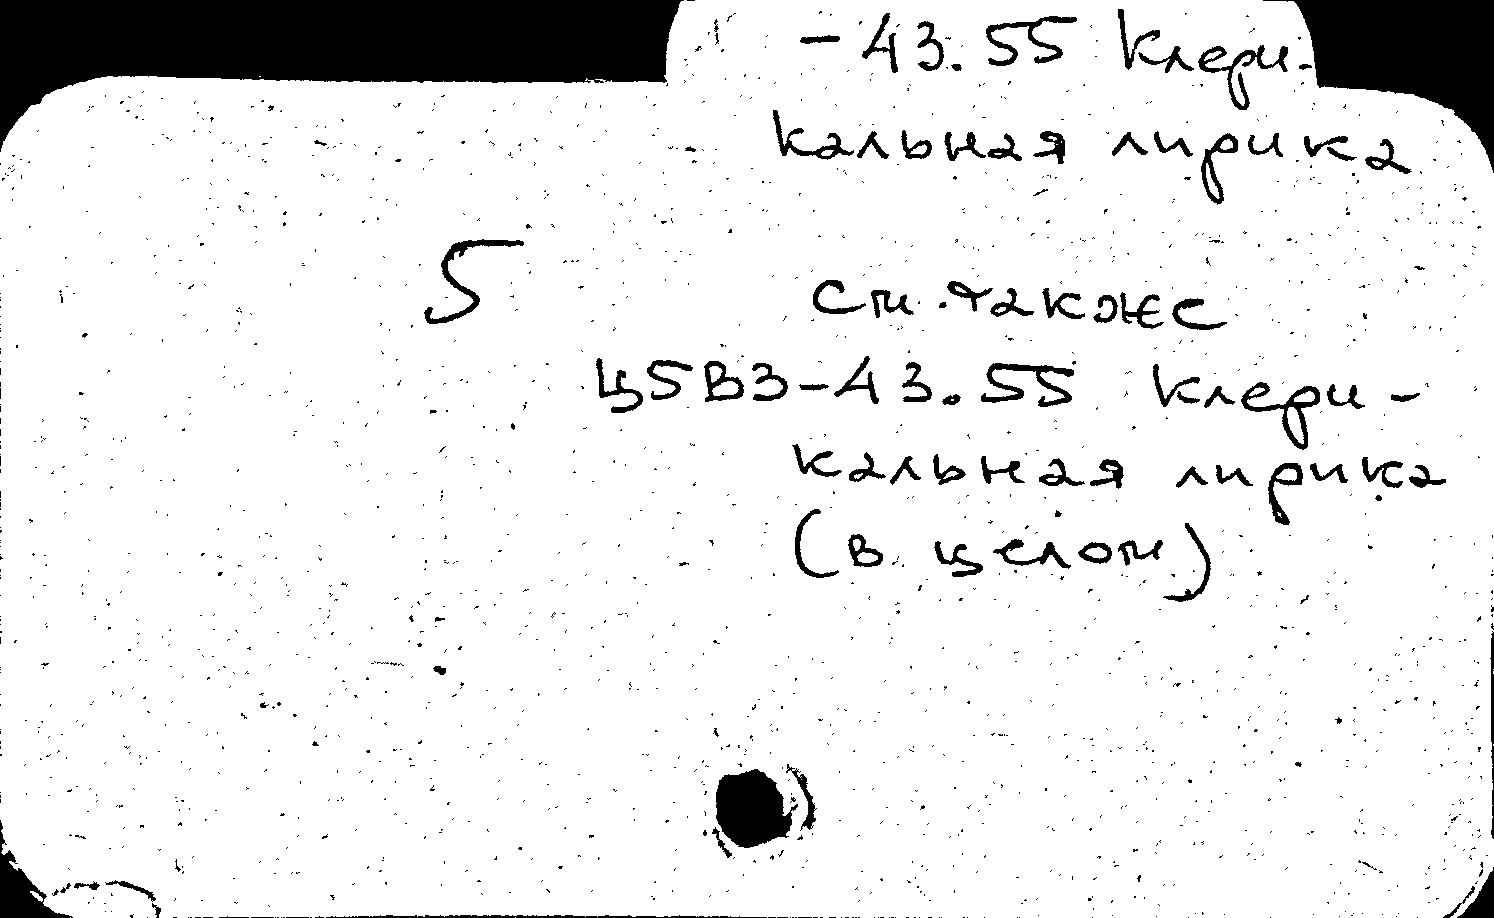 - 43.55 Клери-
кальная лирика
5
см. также
Ц5В3-43.55 Клери-
кальная лирика
(в целом)